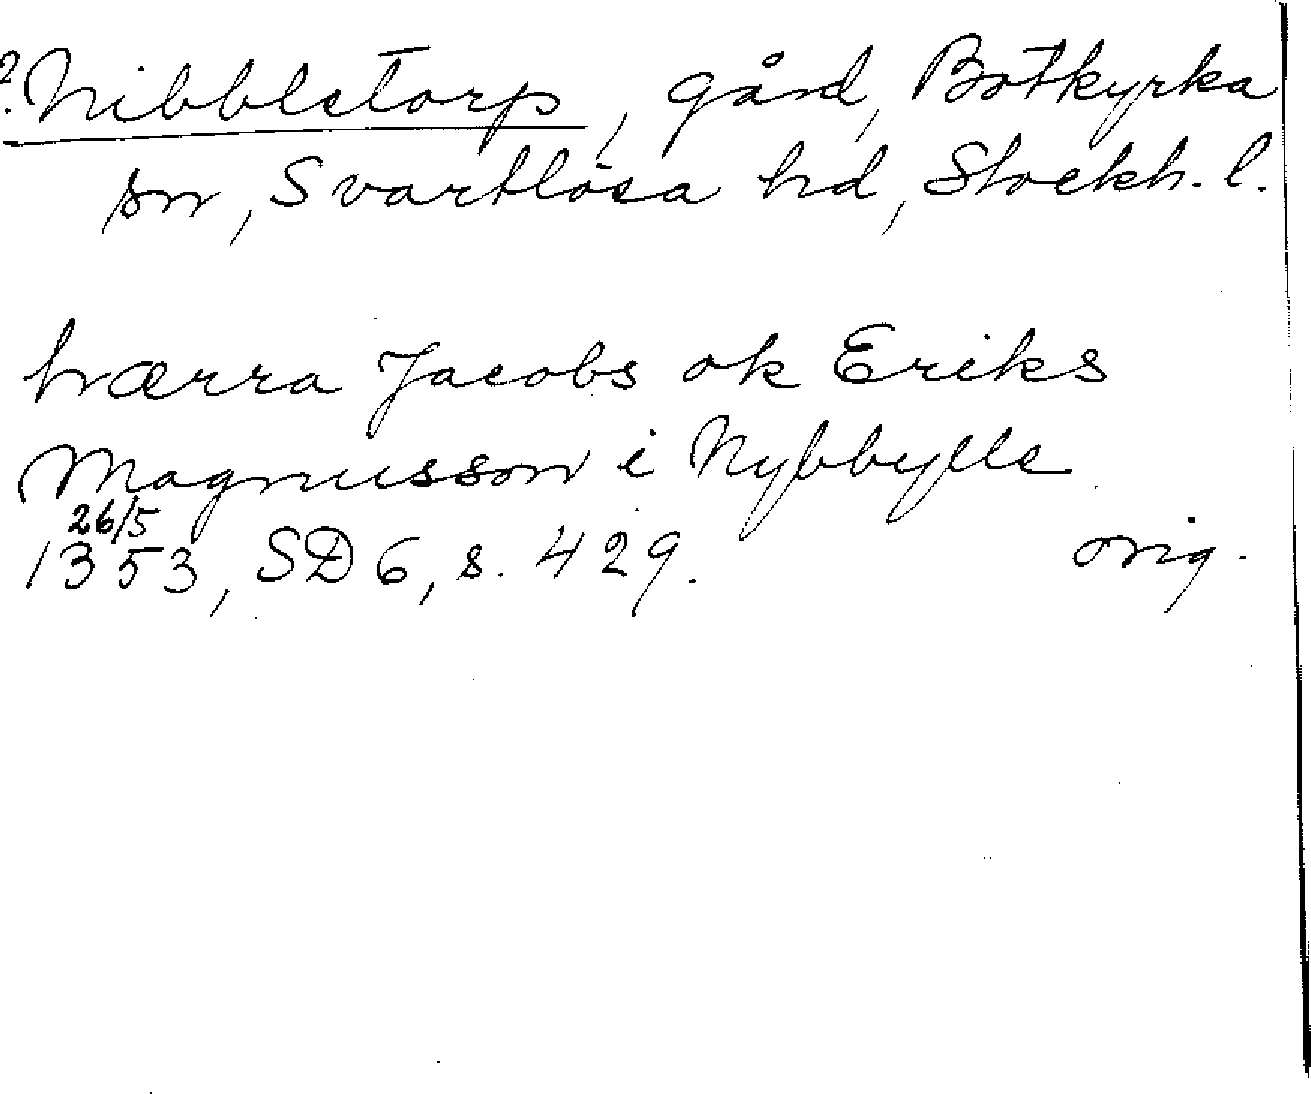 ?. Nibbletorp, gård, Botkyrka
sn, Svartlösa hd, Stockh. l.
hærra Jacobs ok Eriks
Magnusson i Nybbylle
26/5
1353, SD 6, s. 429. orig.